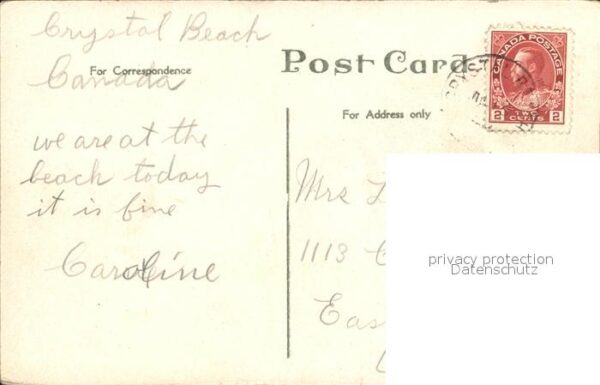 Crystal Beach
Canada
For Correspondence
we are at the
beach today
it is fine
Caroline
Post Card
For Address only
CANADA POSTAGE
2 TWO CENTS 2
Mrs
1113
privacy protection
Datenschutz